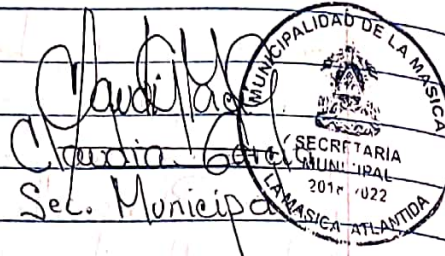 Claudia Garcia
Sec. Municipal
MUNICIPALIDAD DE LA MASICA
SECRETARIA
MUNICIPAL
2022
LA MASICA ATLANTIDA